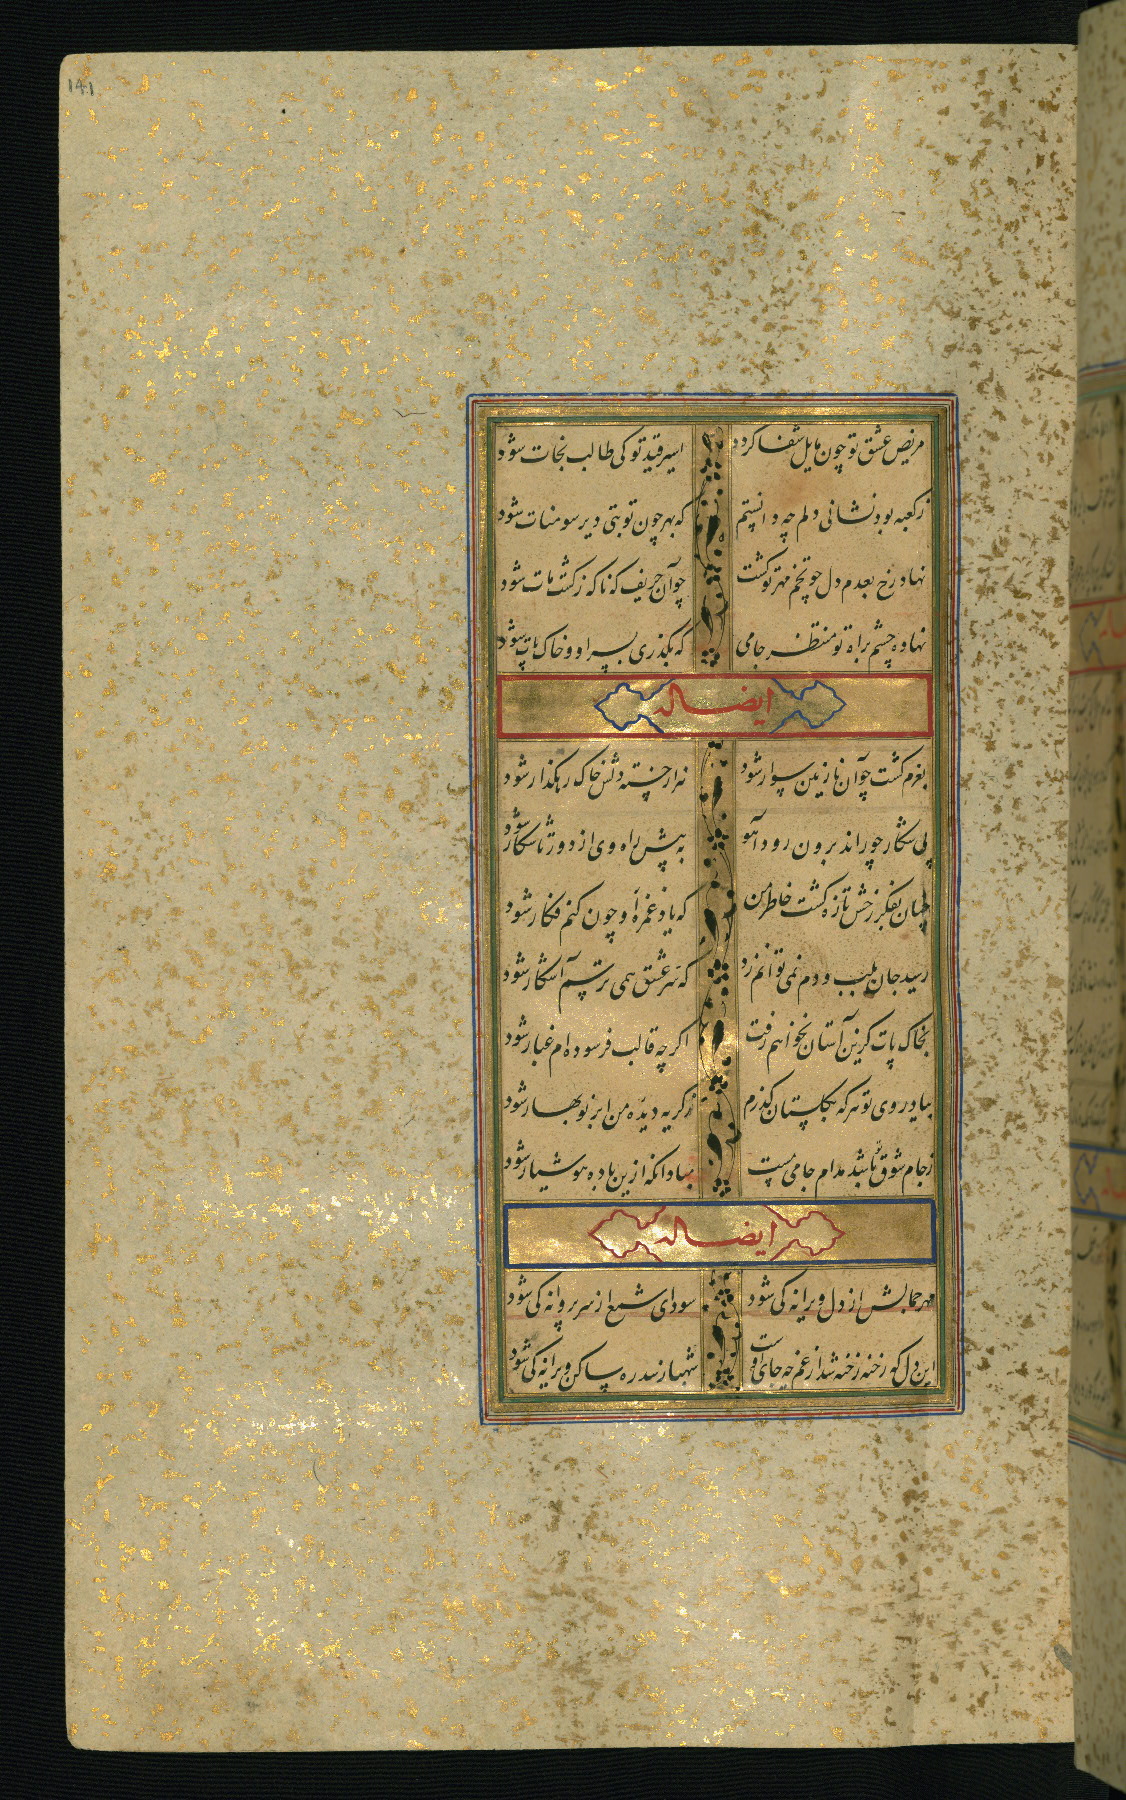 141
مریض عشق تو چون مایل شفا کردد اسیر قید تو کی طالب نجات شود
ز کعبه بود نشانی دلم چه دانستم که بهر چون تو بتی دیر سومنات شود
نهاد رخ بعدم دل چو تخم مهر تو کشت چو آن حریف که ناکه ز کشت مات شود
نهاده چشم براه تو منتظر جامی که بکذری بسر او و خاک پات شود
ایضا له
بعزم کشت چو آن نازنین سوار شود هزار خسته دلش خاک رهکذار شود
پی شکار چو راند برون رود آهو به پیش راه وی از دور تا شکار شود
چنان بفکر رخش تازه کشت خاطر من که یاد غمزه او چون کنم فکار شود
رسید جان بلب و دم نمی توانم زد که سر عشق همی ترسم آشکار شود
بخاک پات کزین آستان نخواهم رفت اکر چه قالب فرسوده ام غبار شود
بیاد روی تو هر که بکلستان کذرم ز کریه دیده من ابر نوبهار شود
ز جام شوق تو باشد مدام جامی مست مباد انکه ازین باده هوشیار شود
ایضا له
مهر جمالش از دل ویرانه کی شود سودای شمع از سر پروانه کی شود
این دل که رخنه رخنه شد از غم چه جای اوست شهباز سدره ساکن ویرانه کی شود